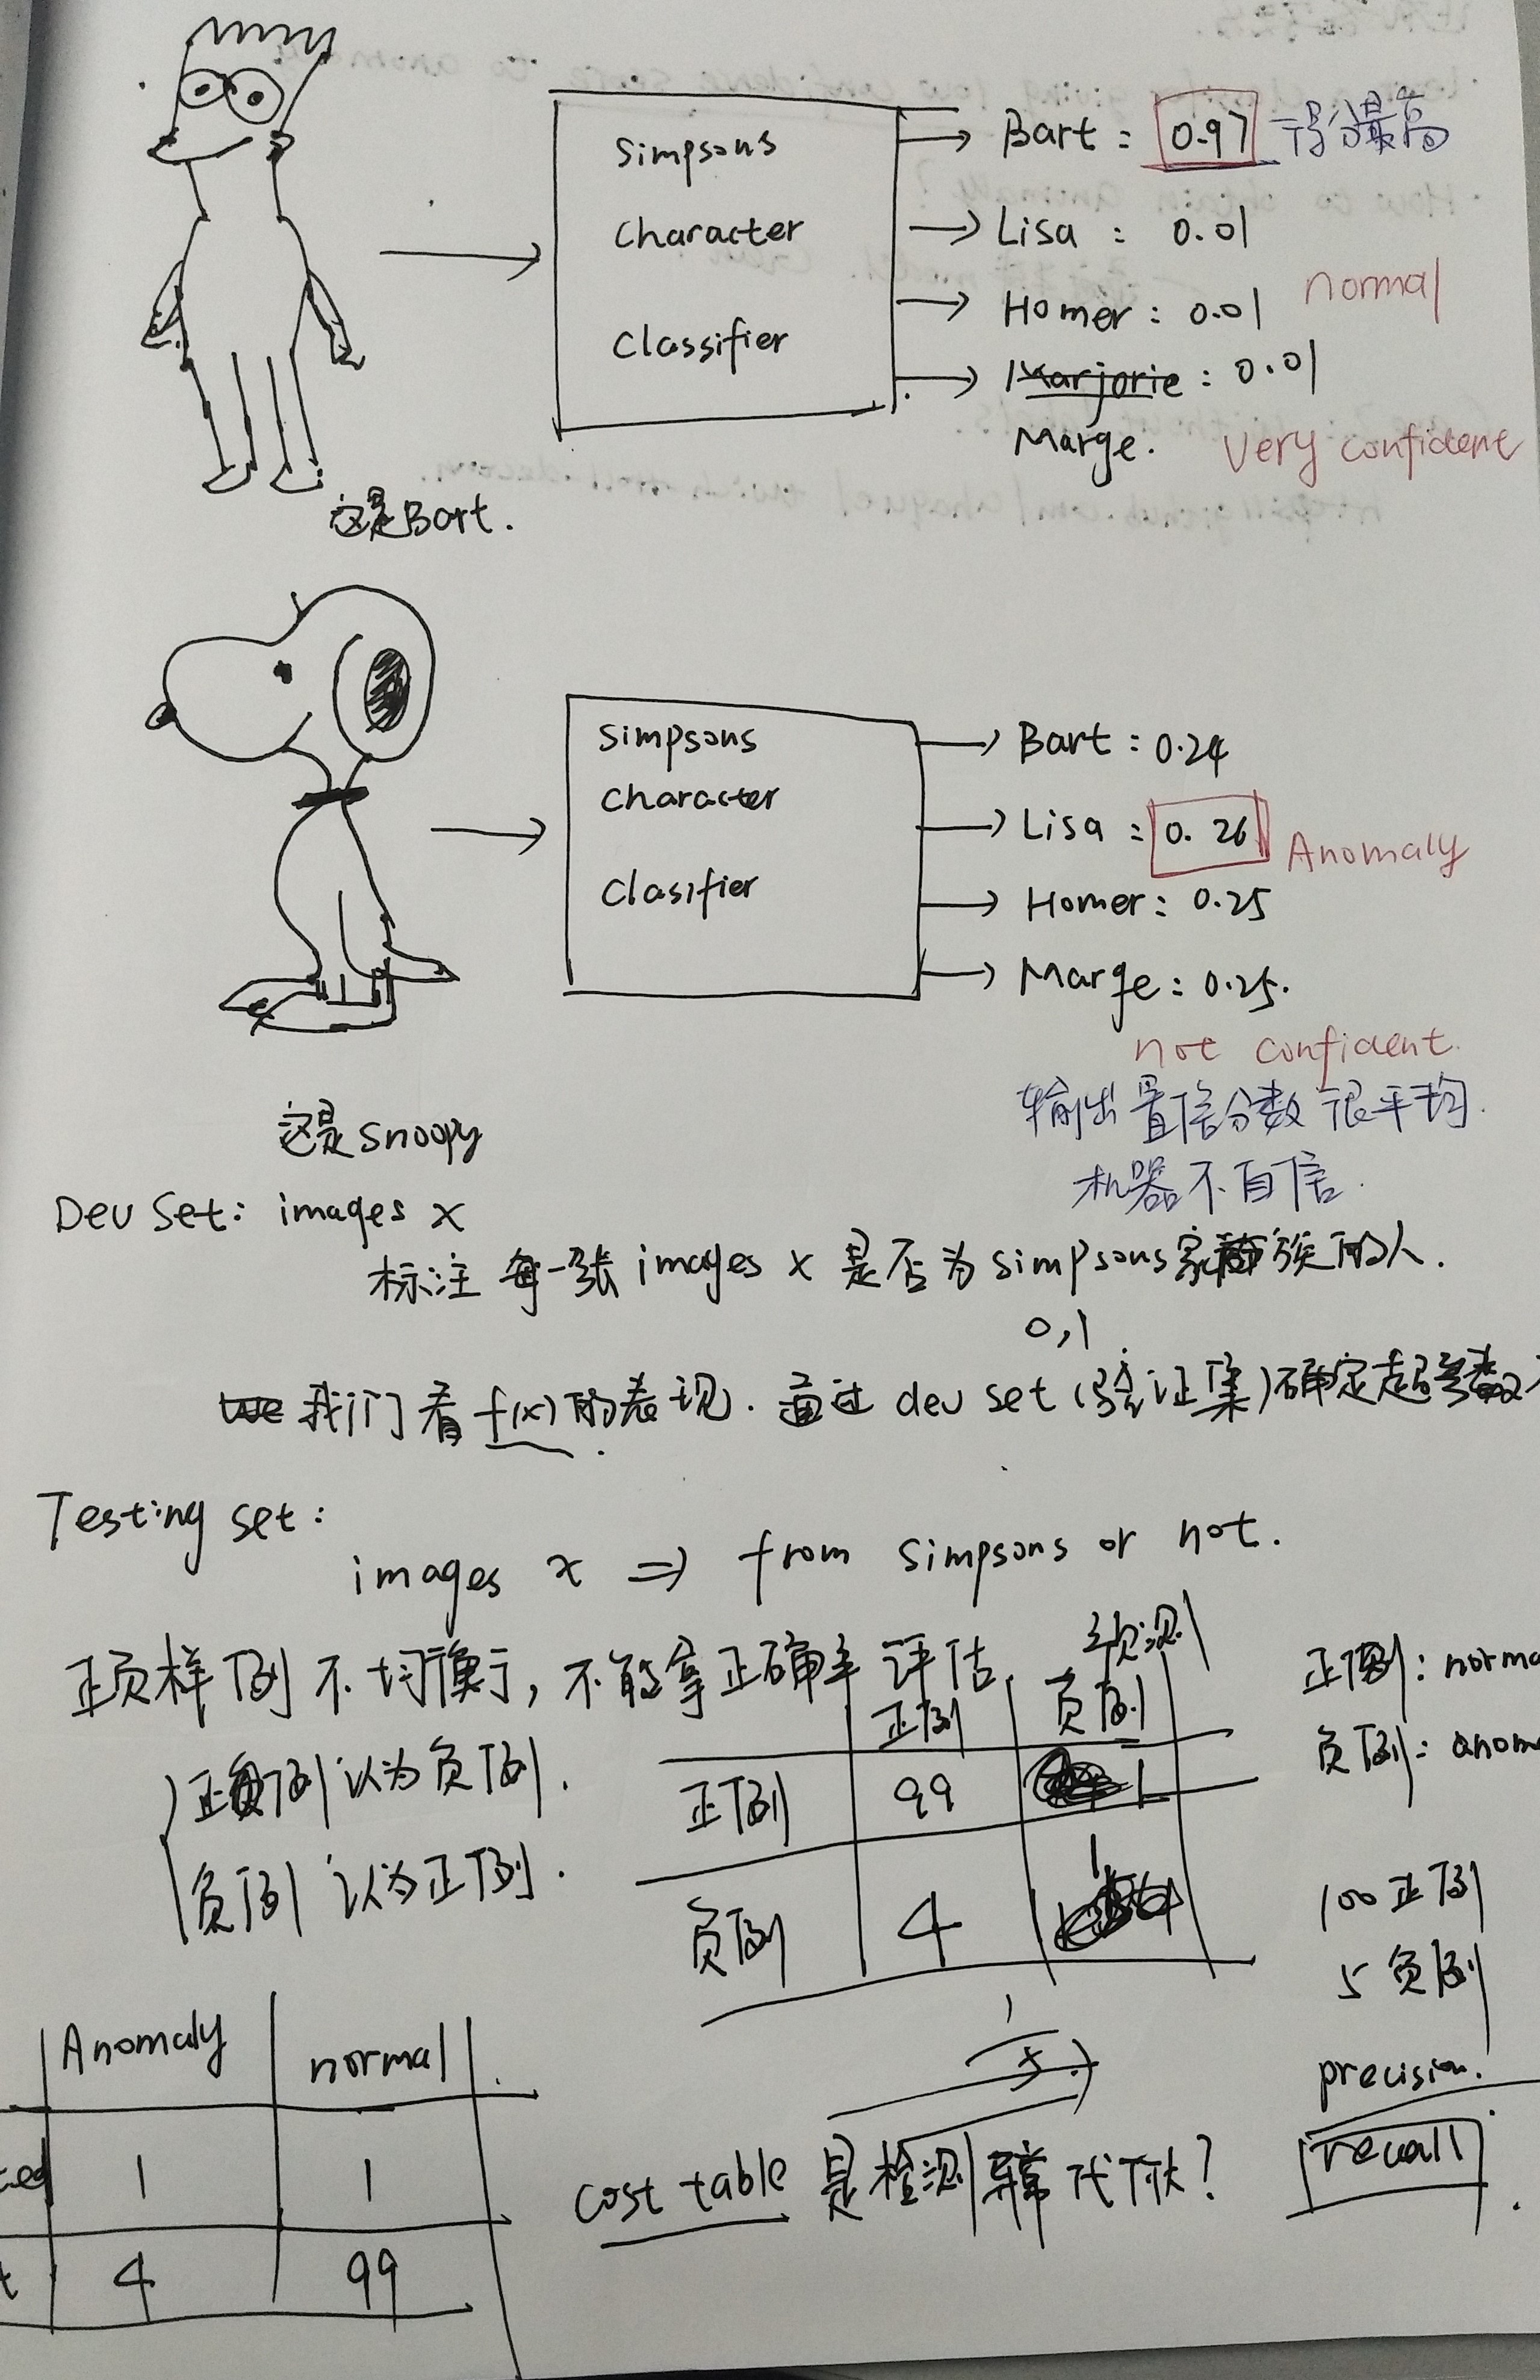 Simpsons
Character
Classifier
Bart : 0.97 得分最高
Lisa : 0.01
Homer : 0.01 normal
Marjorie : 0.01
Marge. Very confident
这是Bart.
Simpsons
Character
Clasifier
Bart : 0.24
Lisa : 0.26 Anomaly
Homer : 0.25
Marge : 0.25.
not confident.
输出置信分数很平均.
机器不自信.
这是Snoopy
Dev Set: images x
标注 每一张 images x 是否为 simpsons家族的人.
0,1.
我们看 f(x) 的表现. 通过 dev set (验证集)确定超参数
Testing set:
images x ⇒ from simpsons or not.
正负样例不均衡, 不能拿正确率评估.
正例认为负例.
负例认为正例.
预测
正例 负例
正例 99 1
负例 4 1
正例: norma
负例: anom
100正例
5负例
precision.
recall
Anomaly normal
1 1
4 99
cost table 是检测异常代价?